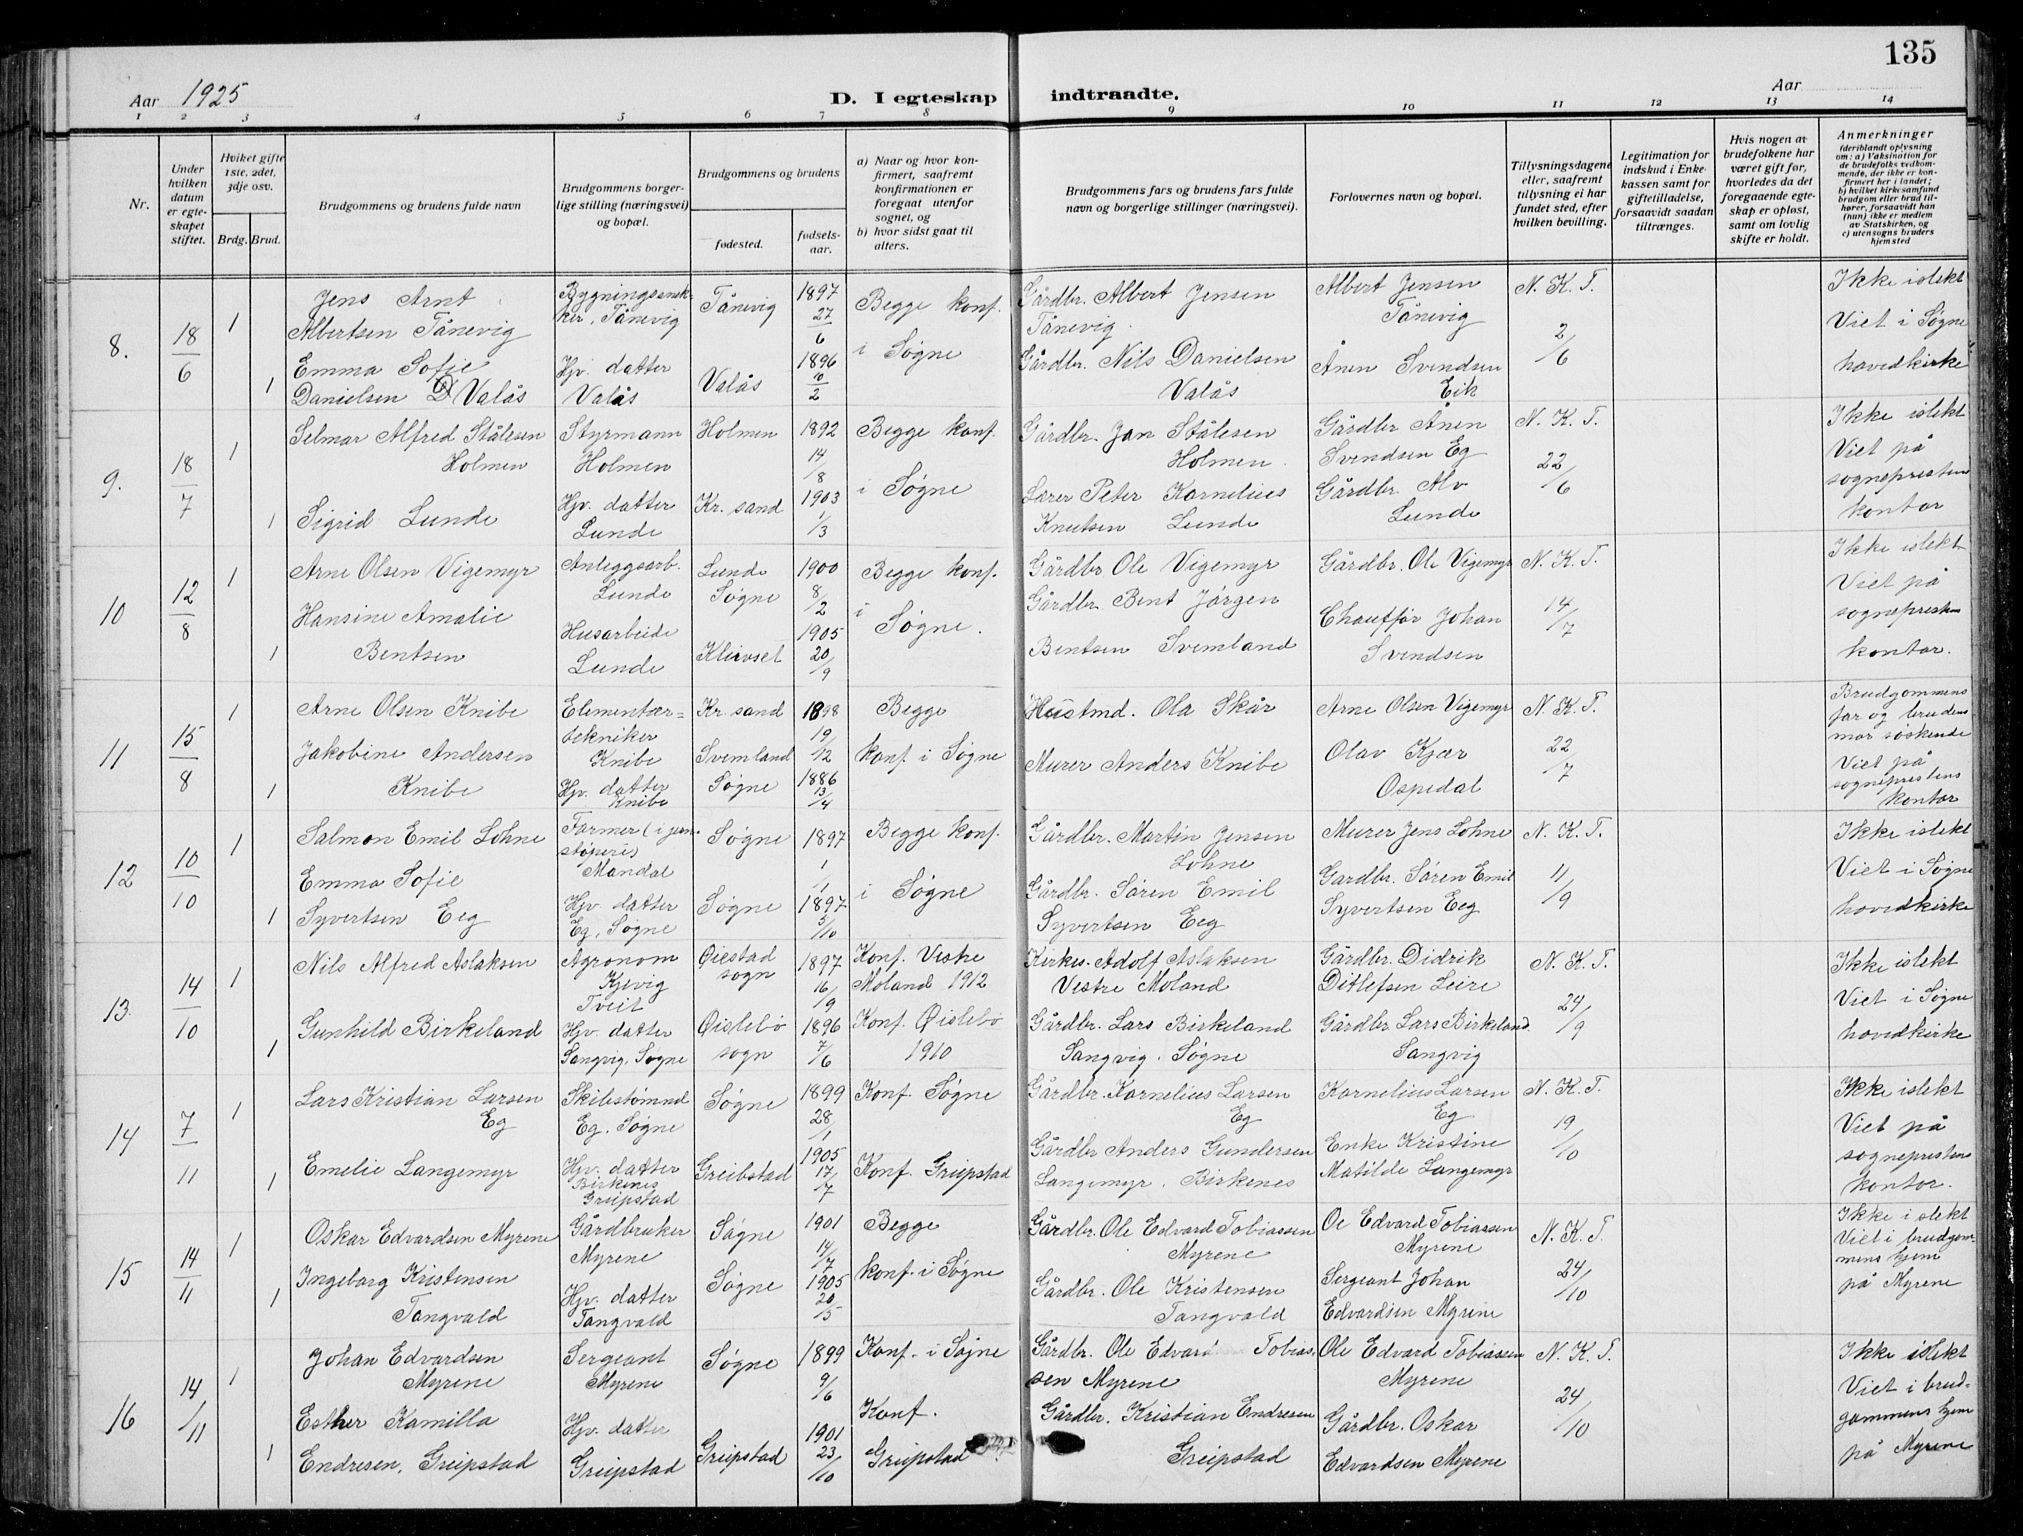 135
Aar 1925
D. I egteskap indtraadte.
Aar
1 2 3 4 5 6 7 8 9 10 11 12 13 14
Nr.
Under hvilken datum er egteskapet stiftet.
Hviket gifte 1ste, 2det, 3dje osv.
Brdg. Brud.
Brudgommens og brudens fulde navn
Brudgommens borgerlige stilling (næringsvei) og bopæl.
Brudgommens og brudens
fødested.
fødselsaar.
a) Naar og hvor konfirmert, saafremt konfirmationen er foregaat utenfor sognet, og
b) hvor sidst gaat til alters.
Brudgommens fars og brudens fars fulde navn og borgerlige stillinger (næringsvei).
Forlovernes navn og bopæl.
Tillysningsdagene eller, saafremt tillysning ei har fundet sted, efter hvilken bevilling.
Legitimation for indskud i Enkekassen samt for giftetilladelse, forsaavidt saadan tiltrænges.
Hvis nogen av brudefolkene har været gift før, hvorledes da det foregaaende egteskap er opløst, samt om lovlig skifte er holdt.
Anmerkninger
(deriblandt oplysning om: a) Vaksination for de brudefolks vedkommende, der ikke er konfirmert her i landet; b) hvilket kirkesamfund brudgom eller brud tilhører, forsaavidt han (hun) ikke er medlem av Statskirken, og c) utensogns bruders hjemsted
8.
18/6
1
Jens Arnt
Albertsen Tånevig
Bygningssnek-
ker, Tånevig
Tånevig
1897
27/6
Begge konf.
i Søgne
Gårdbr. Albert Jensen
Tånevig.
Albert Jensen
Tånevig
N. K. T.
2/6
Ikke i slekt
Viet i Søgne
hovedkirke
1
Emma Sofie
Danielsen Valås
Hjv. datter
Valås
Valås
1896
10/2
Gårdbr. Nils Danielsen
Valås
Ånen Svendsen
Eik
9.
18/7
1
Selmar Alfred Stålesen
Holmen
Styrmann
Holmen
Holmen
1892
14/8
Begge konf.
i Søgne
Gårdbr. Jan Stålesen
Holmen.
Gårdbr Ånen
Svendsen Eg
N. K. T.
22/6
Ikke i slekt
Viet på
sogneprestens
kontor
1
Sigrid Lunde
Hjv. datter
Lunde
Kr. sand
1903
1/3
Lærer Peter Kornelius
Knutsen Lunde
Gårdbr. Alv
Lunde
10
12/8
1
Arne Olsen Vigemyr
Anleggsarb.
Lunde
Lunde
Søgne
1900
8/2
Begge konf.
i
Søgne.
Gårdbr Ole Vigemyr
Gårdbr. Ole Vigemyr
N. K. T.
14/7
Ikke i slekt
Viet på
sogneprestens
kontor.
1
Hansine Amalie
Bentsen
Husarbeide
Lunde
Kleivset
1905
20/9
Gårdbr. Bent Jørgen
Bentsen Svemland
Chauffør Johan
Svendsen
11
15/8
1
Arne Olsen Knibe
Elementær=
tekniker
Knibe
Kr. sand
1898
19/12
Begge
konf. i Søgne
Hustmd. Ola Skår
Arne Olsen Vigemyr
N. K. T.
22/7
Brudgommens
far og brudens
mor søskende
Viet på
sogneprestens
kontor
1
Jakobine Andersen
Knibe
Hjv. datter
Knibe
Svemland
Søgne
1886
13/4
Murer Anders Knibe
Olav Kjær
Ospedal
12
10/10
1
Salmon Emil Lohne
Former (i jern-
støperi)
Mandal
Søgne
1897
1/1
Begge konf.
i Søgne
Gårdbr. Martin Jensen
Lohne
Murer Jens Lohne
N. K. T.
11/9
Ikke i slekt
Viet i Søgne
hovedkirke
1
Emma Sofie
Syvertsen Eeg
Hjv. datter
Eg, Søgne
Søgne
1897
5/10
Gårdbr. Søren Emil
Syvertsen Eeg
Gardbr. Søren Emil
Syvertsen Eeg
13.
14/10
1
Nils Alfred Aslaksen
Agronom
Kjevig
Tveit
Øiestad
sogn
1897
16/9
Konf. Vestre
Moland 1912
Kirkes. Adolf Aslaksen
Vestre Moland
Gårdbr. Didrik
Ditlefsen Leire
N. K. T.
24/9
Ikke i slekt
Viet i Søgne
hovedkirke
1
Gunhild Birkeland
Hjv. datter
Langvig, Søgne
Øislebø
sogn
1896
7/6
Konf. Øislebø
1910
Gårdbr. Lars Birkeland
Langvig. Søgne
Gårdbr Lars Birkeland
Langvig
14
7/11
1
Lars Kristian Larsen
Eg
Skibstømmd
Eg. Søgne
Søgne
1899
28/1
Konf. Søgne
Gårdbr. Kornelius Larsen
Eg
Kornelius Larsen
Eg
N. K. T.
19/10
Ikke i slekt
Viet på
sogneprestens
kontor.
1
Emelie Langemyr
Hjv. datter
Birkenes
Greipstad
Greibstad
1905
17/7
Konf. Greipstad
Gårdbr Anders Gundersen
Langemyr. Birkenes
Enke Kristine
Matilde Langemyr
15
14/11
1
Oskar Edvardsen Myrene
Gårdbruker
Myrene
Søgne
1901
14/7
Begge
konf. i Søgne
Gårdbr. Ole Edvard Tobiassen
Myrene
Oe Edvard Tobiassen
Myrene
N. K. T.
24/10
Ikke i slekt
Viet i brudgom-
mens hjem
på Myrene
1
Ingeborg Kristensen
Tangvald
Hjv. datter
Tangvald
Søgne
1905
20/5
Gårdbr. Ole Kristensen
Tangvald
Sergeant Johan
Edvardsen Myrene
16
14/11
1
Johan Edvardsen
Myrene
Sergeant
Myrene
Søgne
1899
9/6
Konf. i Søgne
Gårdbr. Ole Edvard Tobias-
sen Myrene
Ole Edvard Tobiassen
Myrene
N. K. T.
24/10
Ikke i slekt
Viet i brud=
gommens hjem
på Myrene
1
Esther Kamilla
Endresen, Greipstad
Hjv. datter
Greipstad
Greipstad
1901
23/10
Konf.
Greipstad
Gårdbr. Kristian Endresen
Greipstad
Gårdbr. Oskar
Edvardsen Myrene